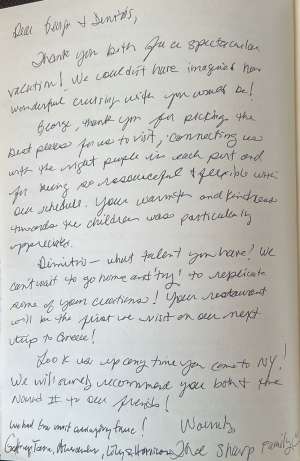 Dear George & Dimitris,
Thank you both for a spectacular
vacation! We couldn't have imagined how
wonderful cruising with you would be!
George, thank you for picking the
best places for us to visit, connecting us
with the right people in each port and
for being so resourceful & flexible with
our schedule. Your warmth and kindness
towards the children was particularly
appreciated.
Dimitris — what talent you have! We
can't wait to go home and try! to replicate
some of your creations! Your restaurant
will be the first we visit on our next
trip to Greece!
Look us up any time you come to NY!
We will surely recommend you both & the
II to our friends!
We had the most amazing time!
Warmly,
Alexander, Lily & Harrison The Sharp Family